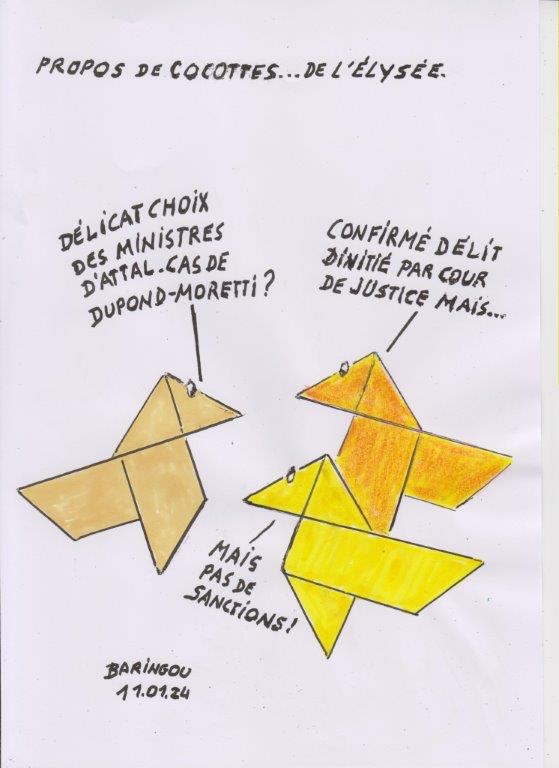 PROPOS DE COCOTTES... DE L'ÉLYSÉE.
DÉLICAT CHOIX
DES MINISTRES
D'ATTAL. CAS DE
DUPOND-MORETTI?
CONFIRMÉ DÉLIT
D'INITIÉ PAR COUR
DE JUSTICE MAIS...
MAIS
PAS DE
SANCTIONS!
BARINGOU
11.01.24